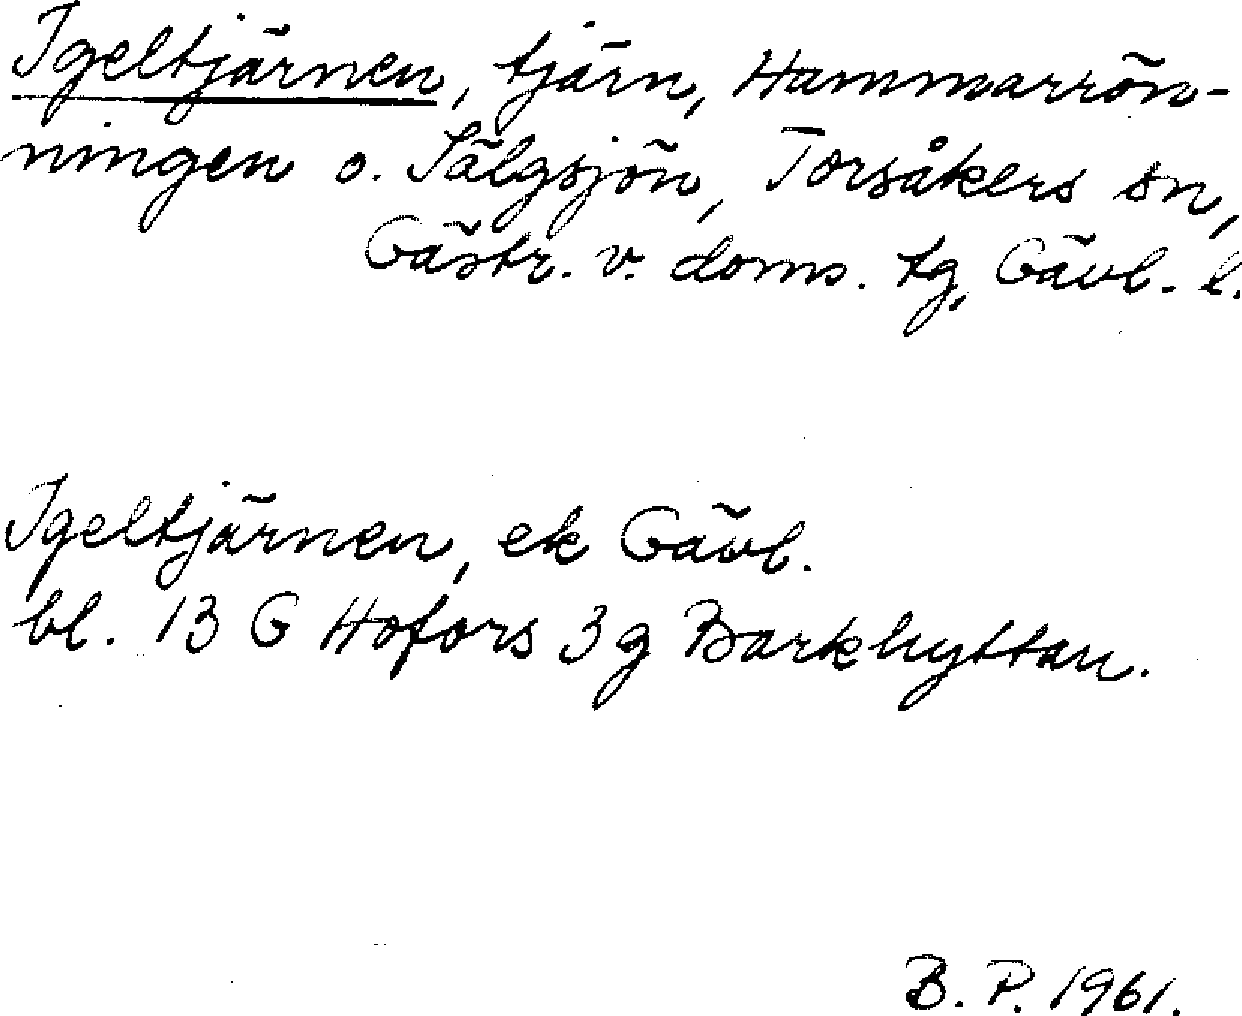 Igeltjärnen, tjärn, Hammarrön-
ningen o. Sälgsjön, Torsåkers sn,
Gästr. v. doms. tg, Gävl. l.
Igeltjärnen, ek Gävl.
bl. 13 G Hofors 3g Barkhyttan.
B. P. 1961.